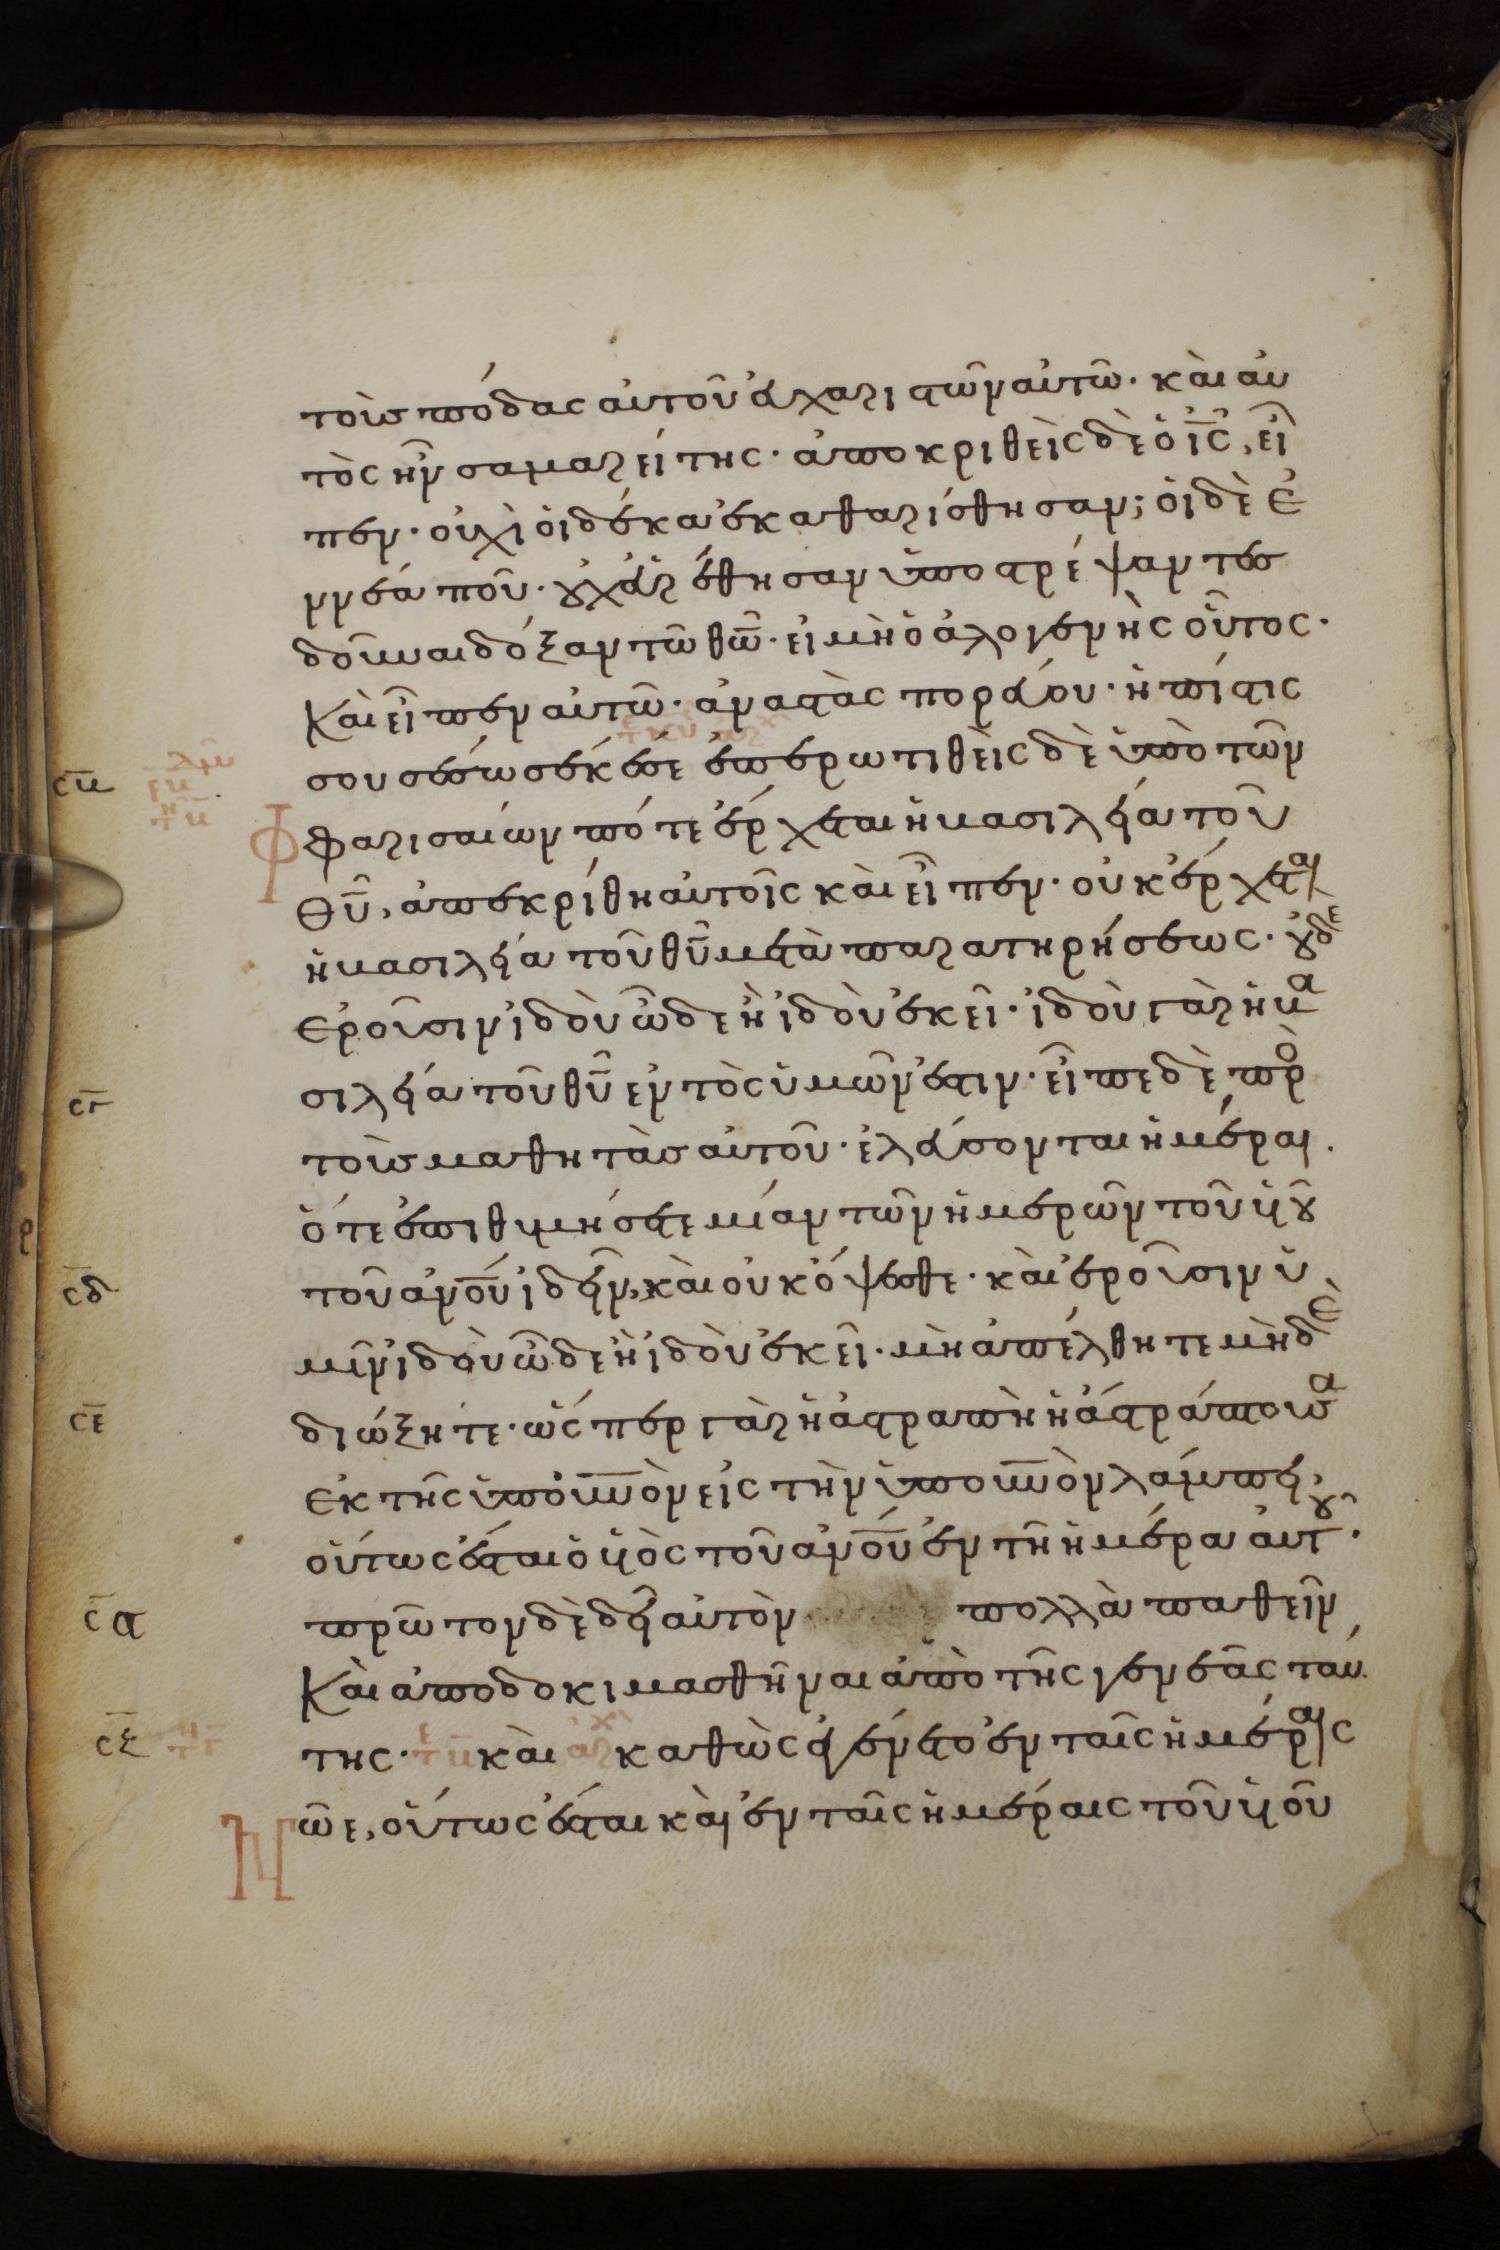 τοὺσ πόδας αὐτοῦ εὐχαριστῶν αὐτῶ· καὶ αὐ
τὸς ἦν σαμαρείτης· ἀποκριθεὶς δὲ ὁ ις, εἶ
πεν· οὐχὶ ὁι δέκα ἐκαθαρίσθησαν; ὁι δὲ ἐ
ννέα ποῦ· οὐχ εὑρέθησαν ὑποστρέψαντες
δοῦναι δόξαν τῶ θω· εἰ μὴ ὁ ἀλογενὴς οὗτος·
Καὶ εἶπεν αὐτῶ· ἀναστὰς πορεύου· ἡ πίστις
σου σέσωσέκέ σε ἐπερωτιθεὶς δὲ ὑπὸ τῶν
Φαρισαίων πότε ἔρχεται ἡ βασιλεία τοῦ
θυ, ἀπεκρίθη αὐτοῖς καὶ εἶπεν· οὐκ ἔρχεται
ἡ βασιλεία τοῦ θυ μετὰ παρατηρήσεως· οὐδὲ
ἐροῦσιν ἰδοὺ ὧδε ἢ ἰδοὺ ἐκεῖ· ἰδοὺ γὰρ ἡ βα
σιλεία τοῦ θυ ἐντὸς ὑμῶν ἐστιν· εἶπε δὲ πρὸ
τοὺσ μαθητὰσ αὐτοῦ· ἐλεύσονται ἡμέραι.
ὅτε ἐπιθυμήσετε μίαν τῶν ἡμερῶν τοῦ υἱοῦ
τοῦ ανου ἰδεῖν, καὶ οὐκ ὄψεσθε· καὶ ἐροῦσιν ὑ
μῖν ἰδοὺ ὧδε ἢ ἰδοὺ ἐκεῖ· μὴ ἀπέλθητε μὴδὲ
διώξητε· ὥσπερ γὰρ ἡ ἀστραπὴ ἡ ἀστράπτουσα
ἐκ τῆς ὑπὸ ουνον εἰς τὴν ὑπ ουνον λάμπει,
οὕτως ἔσται ὁ υἱὸς τοῦ ανου ἐν τῆ ἡμέρα αὐτοῦ·
πρῶτον δὲ δεῖ αὐτὸν πολλὰ παθεῖν
Καὶ ἀποδοκιμασθῆναι ἀπὸ τῆς γενεᾶς ταύ
της· καὶ καθὼς ἐγένετο ἐν ταῖς ἡμέραις
Νῶε, οὕτως ἔσται καὶ ἐν ταῖς ἡμέραις τοῦ υἱοῦ